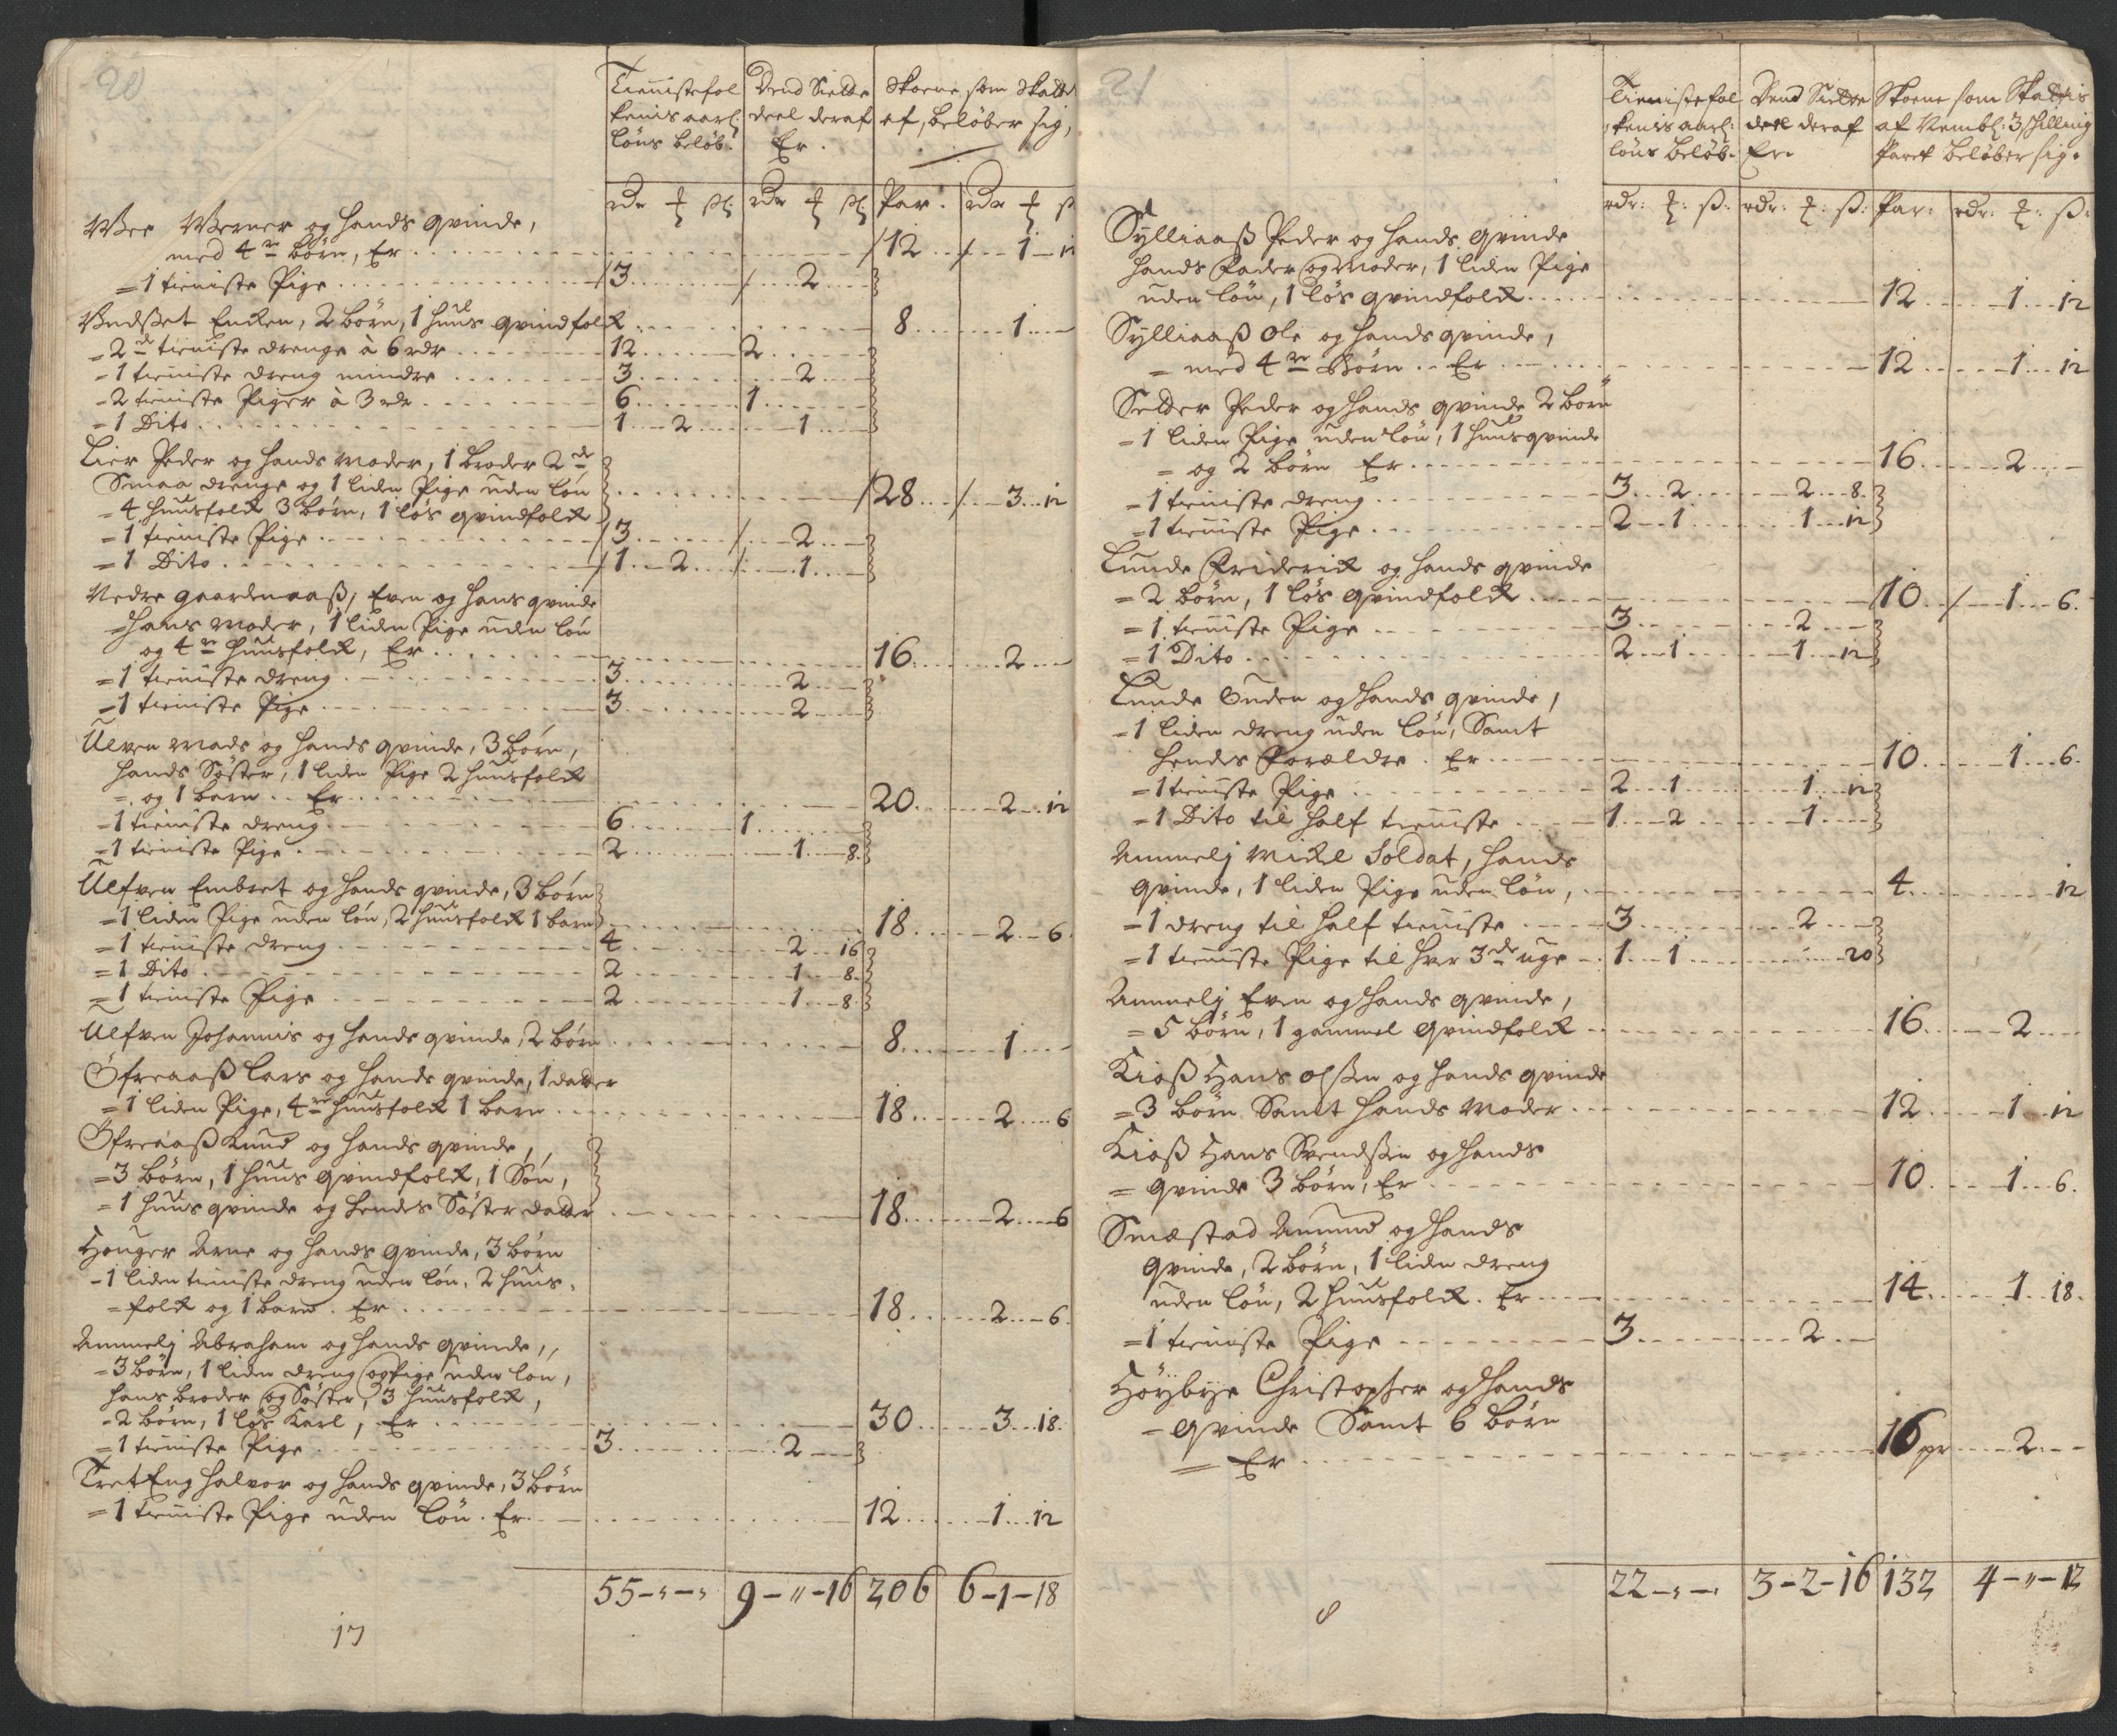 20
Tienistefol
kenis aarl:
löns beløb:
Dend Siette
deel deraf
Er.
Skoene, som Skatte
af, beløber sig,
rdr ß rdr ß Par. rdr
og hands qvinde,
med 4re börn, Er 12 1 12
= 1 tieniste Pige 3 2
Enken, 2 börn, 1 huus qvindfolk 8 1
= 2de tieniste drenge à 6 rdr 12 2
= 1 tieniste dreng mindre 3 2
= 2 tieniste Piger à 3 rdr 6 1
= 1 Dito 1 2 1
Lier Peder og hands Moder, 1 broder 2de
Smaa drenge og 1 liden Pige uden lön 28 3 12
= 4 huusfolk 3 börn, 1 lös qvindfolk
= 1 tieniste Pige 3 2
= 1 Dito 1 2 1
Nedre gaardenaaß, Even og hans qvinde
= hans Moder, 1 liden Pige uden lön
og 4re huusfolk, Er 16 2
= 1 tieniste dreng 3 2
= 1 tieniste Pige 3 2
Ulven Mads og hands qvinde, 3 börn,
hands Söster, 1 liden Pige 2 huusfolk
= og 1 barn Er 20 2 12
= 1 tieniste dreng 6 1
= 1 tieniste Pige 2 1 8
Ulfven Embret og hands qvinde, 3 börn
= 1 liden Pige uden lön, 2 huusfolk 1 barn 18 2 6
= 1 tieniste dreng 4 2 16
= 1 Dito 2 1 8
= 1 tieniste Pige 2 1 8
Ulfven Johannis og hands qvinde, 2 börn 8 1
Öfreaaß Lars og hands qvinde, 1 datter
= 1 liden Pige, 4re huusfolk 1 barn 18 2 6
Öfreaaß Knud og hands qvinde,
= 3 börn, 1 huus qvindfolk, 1 Sön,
= 1 huus qvinde og hendes Söster datter 18 2 6
Houger Arne og hands qvinde, 3 börn
= 1 liden tieniste dreng uden lön, 2 huus-
= folk og 1 barn. Er 18 2 6
Ammelj Abraham og hands qvinde,
= 3 börn, 1 liden dreng og Pige uden lön,
hans broder og Söster, 3 huusfolk,
= 2 börn, 1 lös Karl, Er 30 3 18
= 1 tieniste Pige 3 2
TretEng Halvor og hands qvinde, 3 börn
= 1 tieniste Pige uden lön. Er 12 1 12
55 - „ - „ 9 - „ - 16 206 6 - 1 - 18
17
21
Tienistefol
kenis aarl:
löns beløb.
Dend Siette
deel deraf
Er.
Skoene som Skattis
af Nembl: 3 skilling
Paret beløber sig.
rdr: ß: rdr: ß: Par: rdr: ß:
Sylliaaß Peder og hands qvinde
hands Fader og Moder, 1 liden Pige
uden lön, 1 lös qvindfolk 12 1 12
Sylliaaß Ole og hands qvinde,
= med 4re Börn Er 12 1 12
Selder Peder og hands qvinde 2 börn
= 1 liden Pige uden lön, 1 huusqvinde
= og 2 börn Er 16 2
= 1 tieniste dreng 3 2 2 8
= 1 tieniste Pige 2 1 1 12
Lunde Friderik og hands qvinde
= 2 börn, 1 lös qvindfolk 10 1 6
= 1 tieniste Pige 3 2
= 1 Dito 2 1 1 12
Lunde Guden og hands qvinde,
= 1 liden dreng uden lön, Samt
hendes Forældre. Er 10 1 6
= 1 tieniste Pige 2 1 1 12
= 1 Dito til half tieniste 1 2 1
Ammelj Mikel Soldat, hands
qvinde, 1 liden Pige uden lön, 4 12
= 1 dreng til half tieniste 3 2
= 1 tieniste Pige til hver 3de uge 1 1 20
Ammelj Even og hands qvinde,
= 5 börn, 1 gammel qvindfolk 16 2
Kiøß Hans olßen og hands qvinde
= 3 börn Samt hands Moder 12 1 12
Kiøß Hans Svendßen og hands
= qvinde 3 börn, Er 10 1 6
Smæstad Amund og hands
qvinde, 2 börn, 1 liden dreng
uden lön, 2 huusfolk. Er 14 1 18
= 1 tieniste Pige 3 2
Höybye Christopher og hands
= qvinde Samt 6 börn
= Er 16 pr 2
22 - „ - „ 3 - 2 - 16 132 4 - „ - 12
8